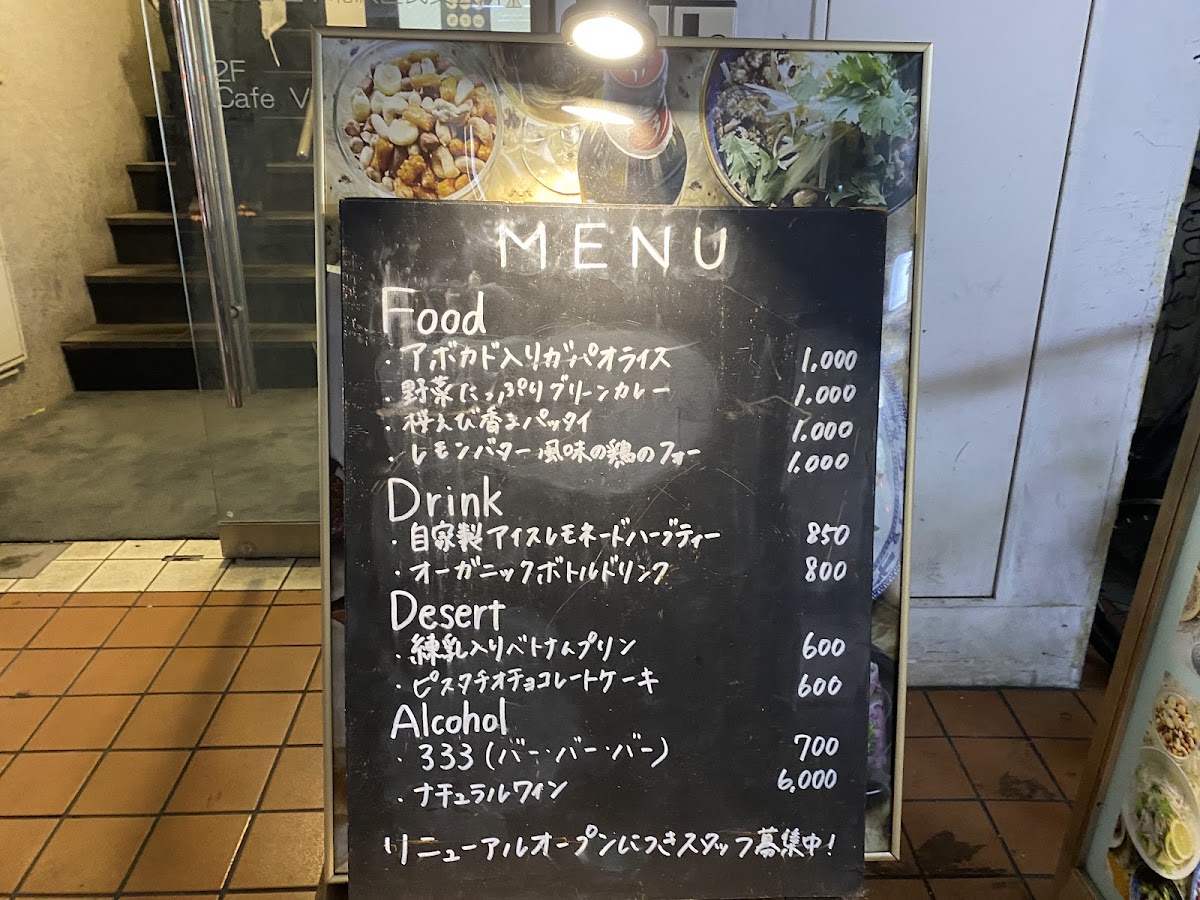 2F
Cafe V
MENU
Food
・アボカド入りガパオライス 1,000
・野菜たっぷりグリーンカレー 1.000
・桜えび香るパッタイ 1.000
・レモンバター風味の鶏のフォー 1.000
Drink
・自家製アイスレモネードハーブティー 850
・オーガニックボトルドリンク 800
Desert
・練乳入りベトナムプリン 600
・ピスタチオチョコレートケーキ 600
Alcohol
・333(バー・バー・バー) 700
・ナチュラルワイン 6,000
リニューアルオープンにつきスタッフ募集中!